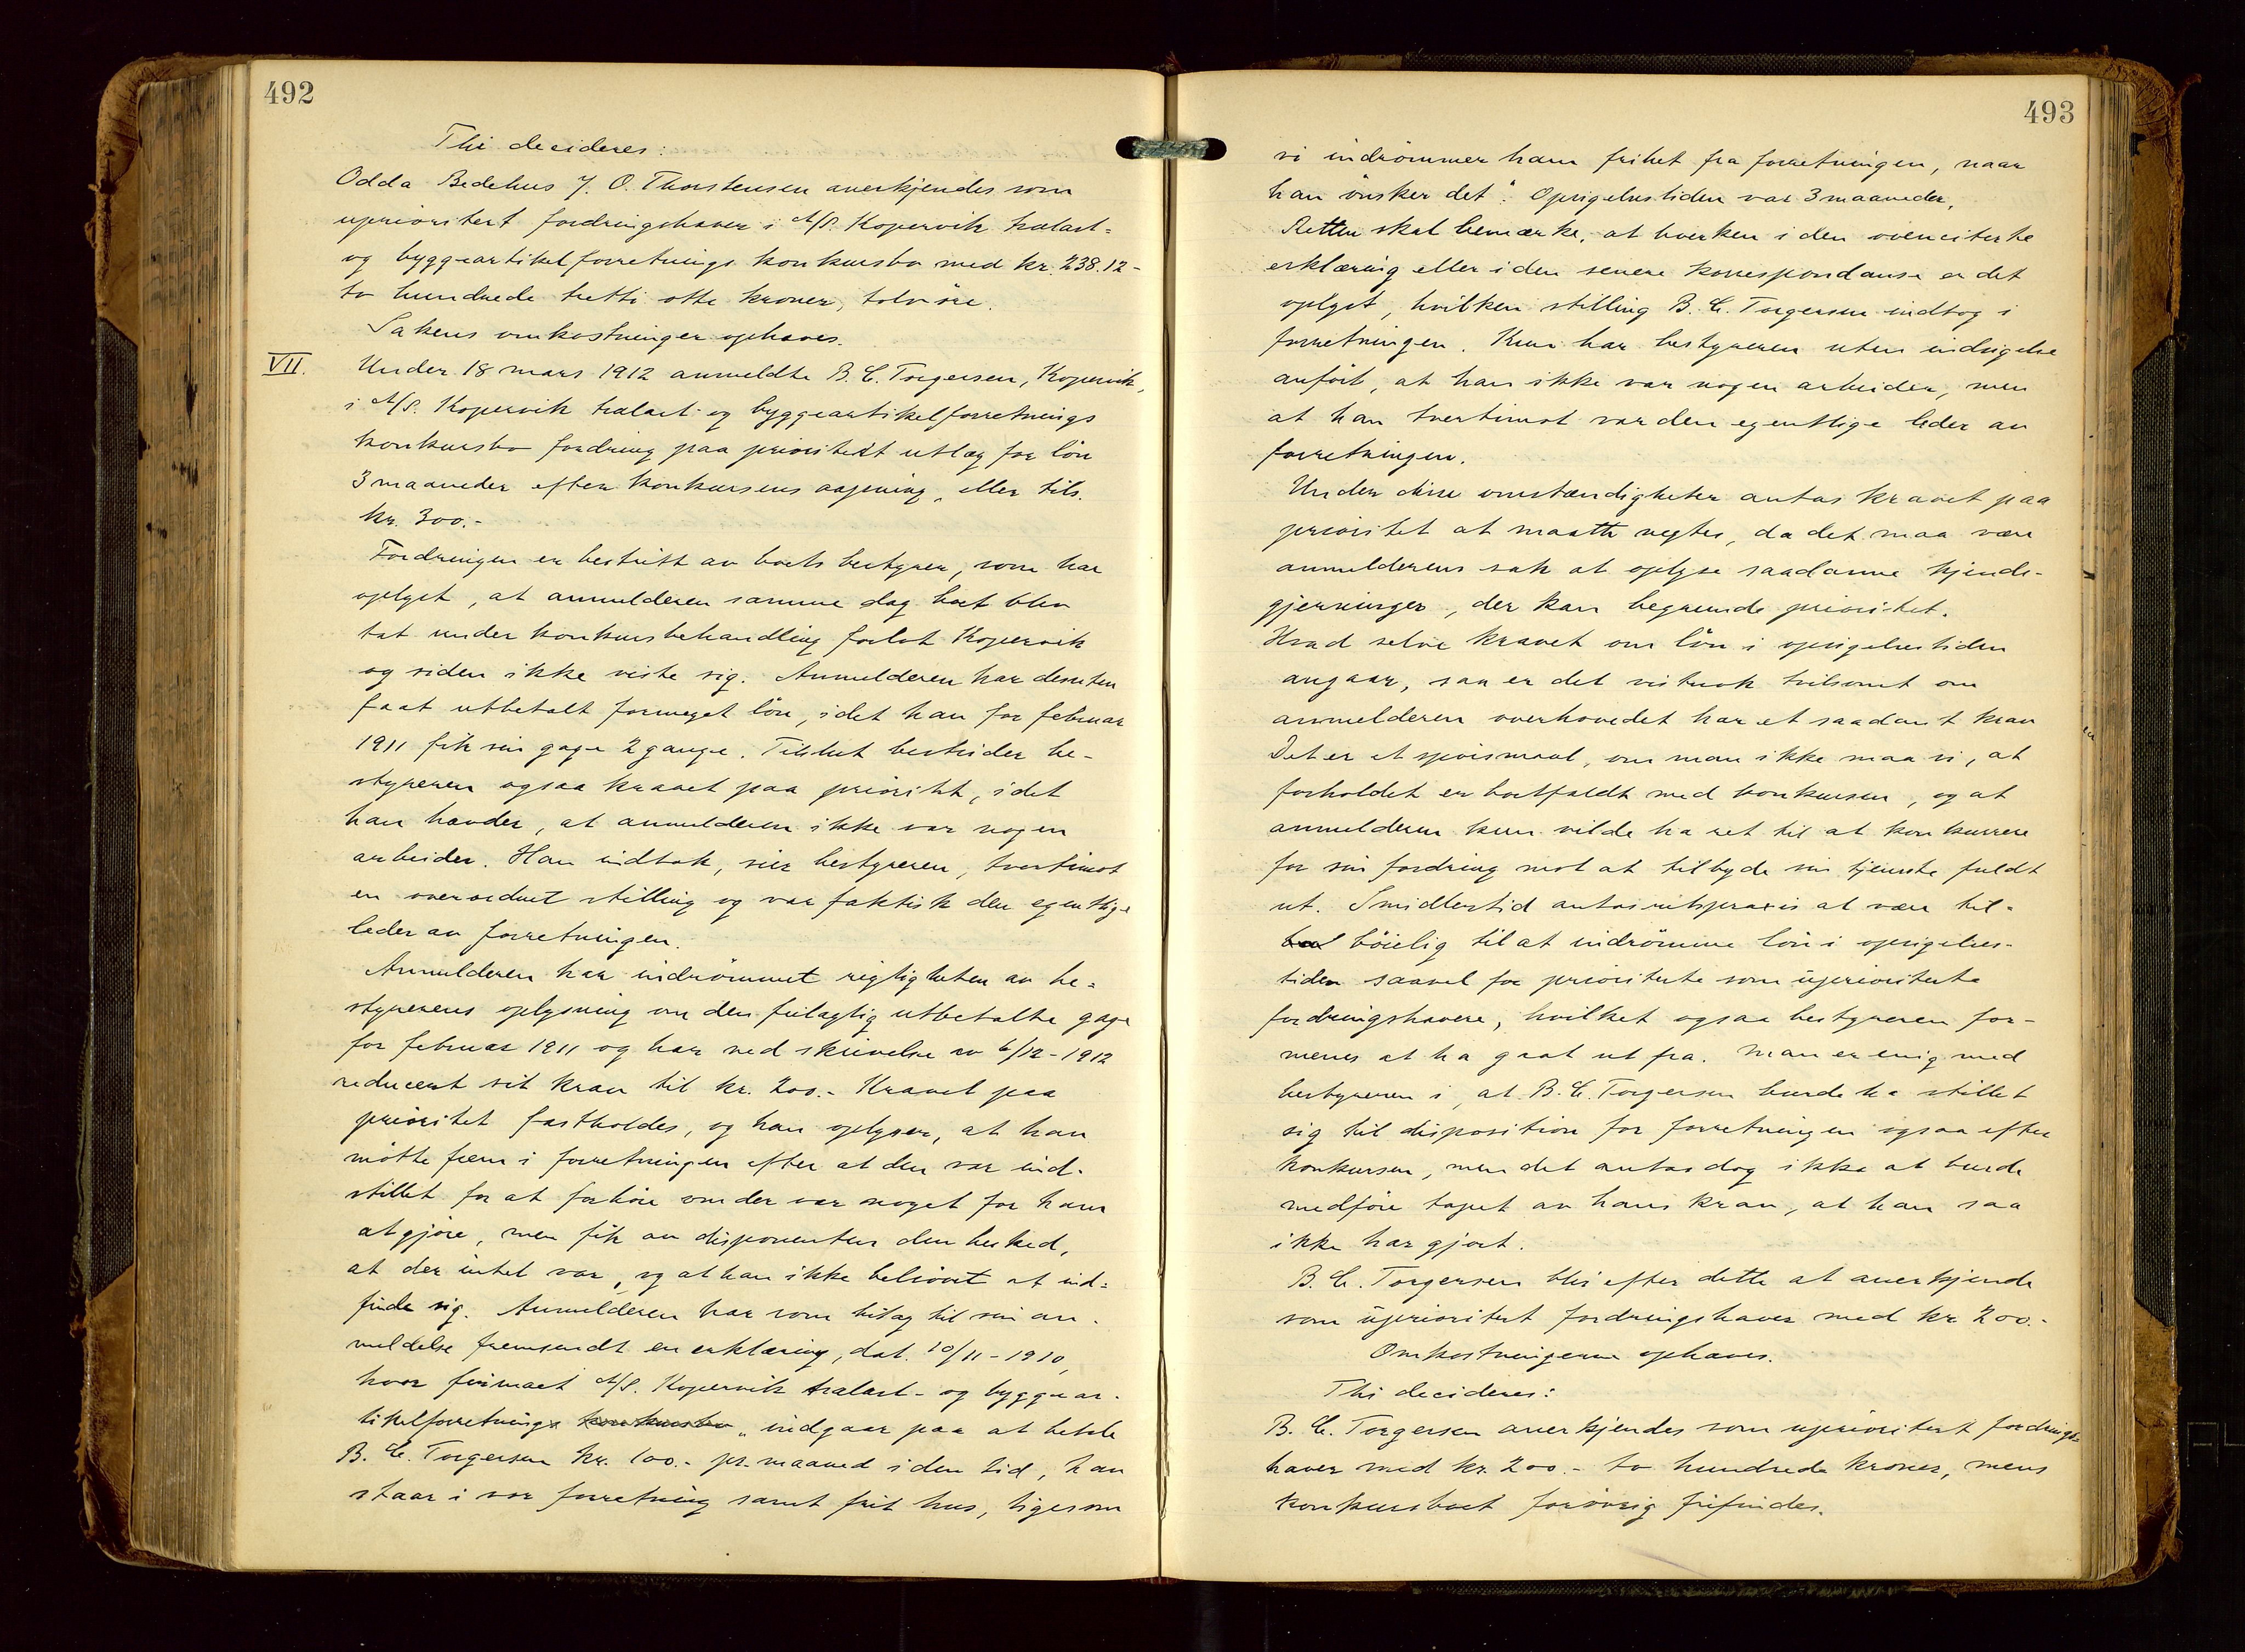 492
Thi decideres:
Odda Bedehus v. O. Thorstensen anerkjendes som
uprioritert fordringshaver i A/S. Kopervik trælast-
og byggeartikelforretnings konkursbo med kr. 238.12 -
to hundrede tretti otte kroner, tolv øre.
Sakens omkostninger ophæves.
VII. Under 18 mars 1912 anmeldte B. C. Torgersen, Kopervik,
i A/S. Kopervik trælast- og byggeartikelforretnings
konkursbo fordring paa prioritert utlæg for løn
3 maaneder efter konkursens aapning, eller tils.
kr. 300.-
Fordringen er bestritt av boets bestyrer, som har
oplyst, at anmelderen samme dag boet blev
tat under konkursbehandling forlot Kopervik
og siden ikke viste sig. Anmelderen har desuten
faat utbetalt formeget løn, idet han for februar
1911 fik sin gage 2 gange. Tilslut bestrider be-
styreren ogsaa kravet paa prioritet, idet
han hævder, at anmelderen ikke var nogen
arbeider. Han indtok, sier bestyreren, tvertimot
en overordnet stilling og var faktisk den egentlige
leder av forretningen.
Anmelderen har indrømmet rigtigheten av be-
styrerens oplysning om den feilagtig utbetalte gage
for februar 1911 og har ved skrivelse av 6/12-1912
reducert sit krav til kr. 200.- Kravet paa
prioritet fastholdes, og han oplyser, at han
møtte frem i forretningen efter at den var ind-
stillet for at forhøre om der var noget for ham
at gjøre, men fik av disponenten den besked,
at der intet var, og at han ikke behøvet at ind-
finde sig. Anmelderen har som bilag til sin an-
meldelse fremsendt en erklæring, dat. 10/11-1910,
hvor firmaet A/S. Kopervik trælast- og byggear-
tikelforretnings konkursbo „indgaar paa at betale
B. C. Torgersen kr. 100.- pr. maaned i den tid, han
staar i vor forretning samt frit hus, ligesom
493
vi indrømmer ham frihet fra forretningen, naar
han ønsker det". Opsigelsestiden var 3 maaneder.
Retten skal bemerke, at hverken i den ovenciterte
erklæring eller i den senere korrespondanse er det
oplyst, hvilken stilling B. C. Torgersen indtog i
forretningen. Kun har bestyreren uten indsigelse
anført, at han ikke var nogen arbeider, men
at han tvertimot var den egentlige leder av
forretningen.
Under disse omstændigheter antas kravet paa
prioritet at maatte negtes, da det maa være
anmelderens sak at oplyse saadanne kjends-
gjerninger, der kan begrunde prioritet.
Hvad selve kravet om løn i opsigelsestiden
angaar, saa er det vistnok tvilsomt om
anmelderen overhovedet har et saadant krav
Det er et spørsmaal, om man ikke maa si, at
forholdet er bortfaldt med konkursen, og at
anmelderen kun vilde ha ret til at konkurrere
for sin fordring mot at tilbyde sin tjeneste fuldt
ut. Imidlertid antas retspraxis at være til-
bøielig til at indrømme løn i opsigelses-
tiden saavel for prioriterte som uprioriterte
fordringshavere, hvilket ogsaa bestyreren for-
menes at ha gaat ut fra. Man er enig med
bestyreren i, at B. C. Torgersen burde ha stillet
sig til disposition for forretningen ogsaa efter
konkursen, men det antas dog ikke at burde
medføre tapet av hans krav, at han saa
ikke har gjort.
B. C. Torgersen blir efter dette at anerkjende
som uprioritert fordringshaver med kr 200.-
Omkostningerne ophæves.
Thi decideres:
B. C. Torgersen anerkjendes som uprioritert fordrings-
haver med kr. 200.- to hundrede kroner, mens
konkursboet forøvrig frifindes.